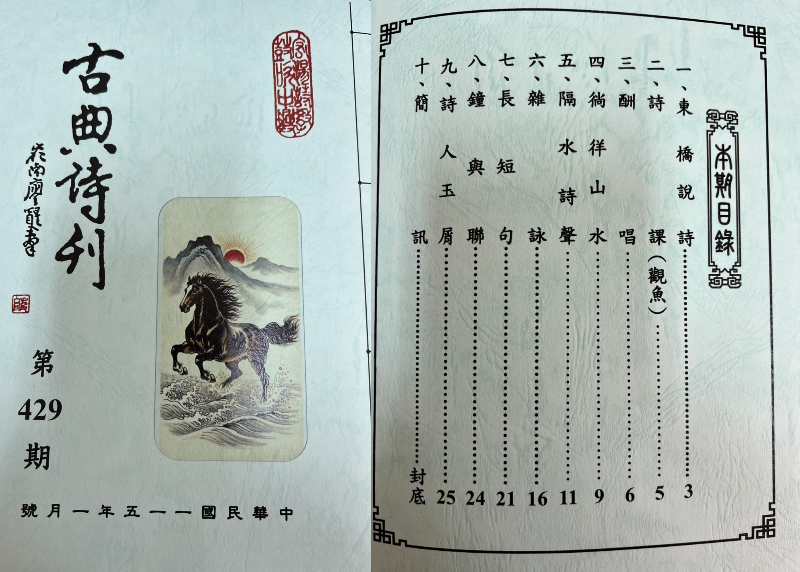 古典詩刊
嶺南廖從雲署
第
429
期
中華民國一一五年一月號
本期目錄
一、東橋說詩………3
二、詩課(觀魚)………5
三、酬唱………6
四、徜徉山水………9
五、隔水詩聲………11
六、雜詠………16
七、長短句………21
八、鐘與聯………24
九、詩人玉屑………25
十、簡訊………封底